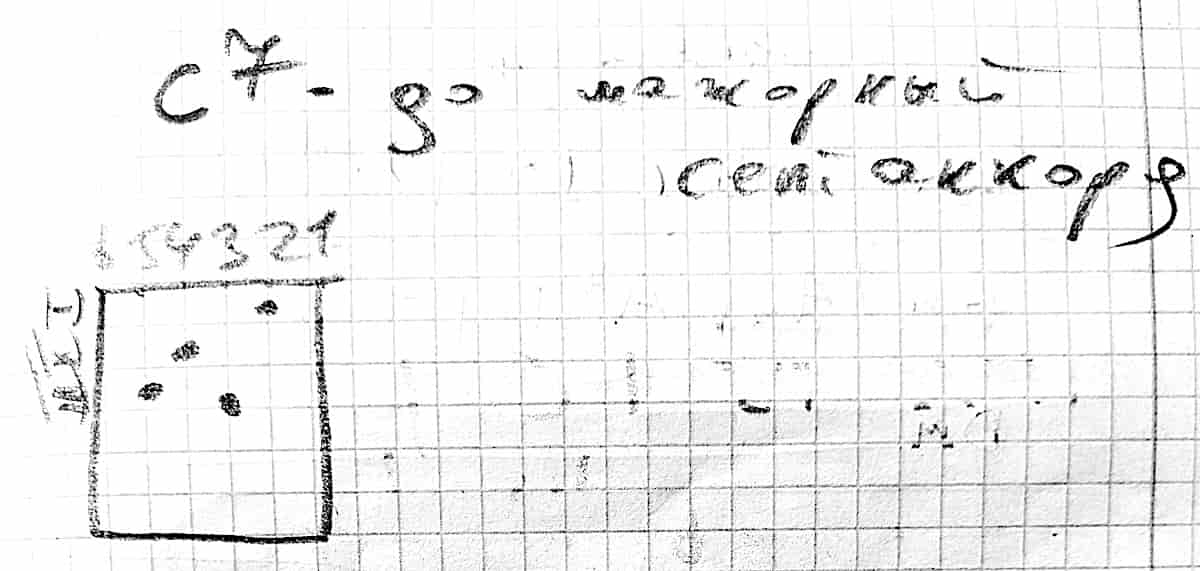 C7 - до мажорный
септаккорд
654321
I
II
III